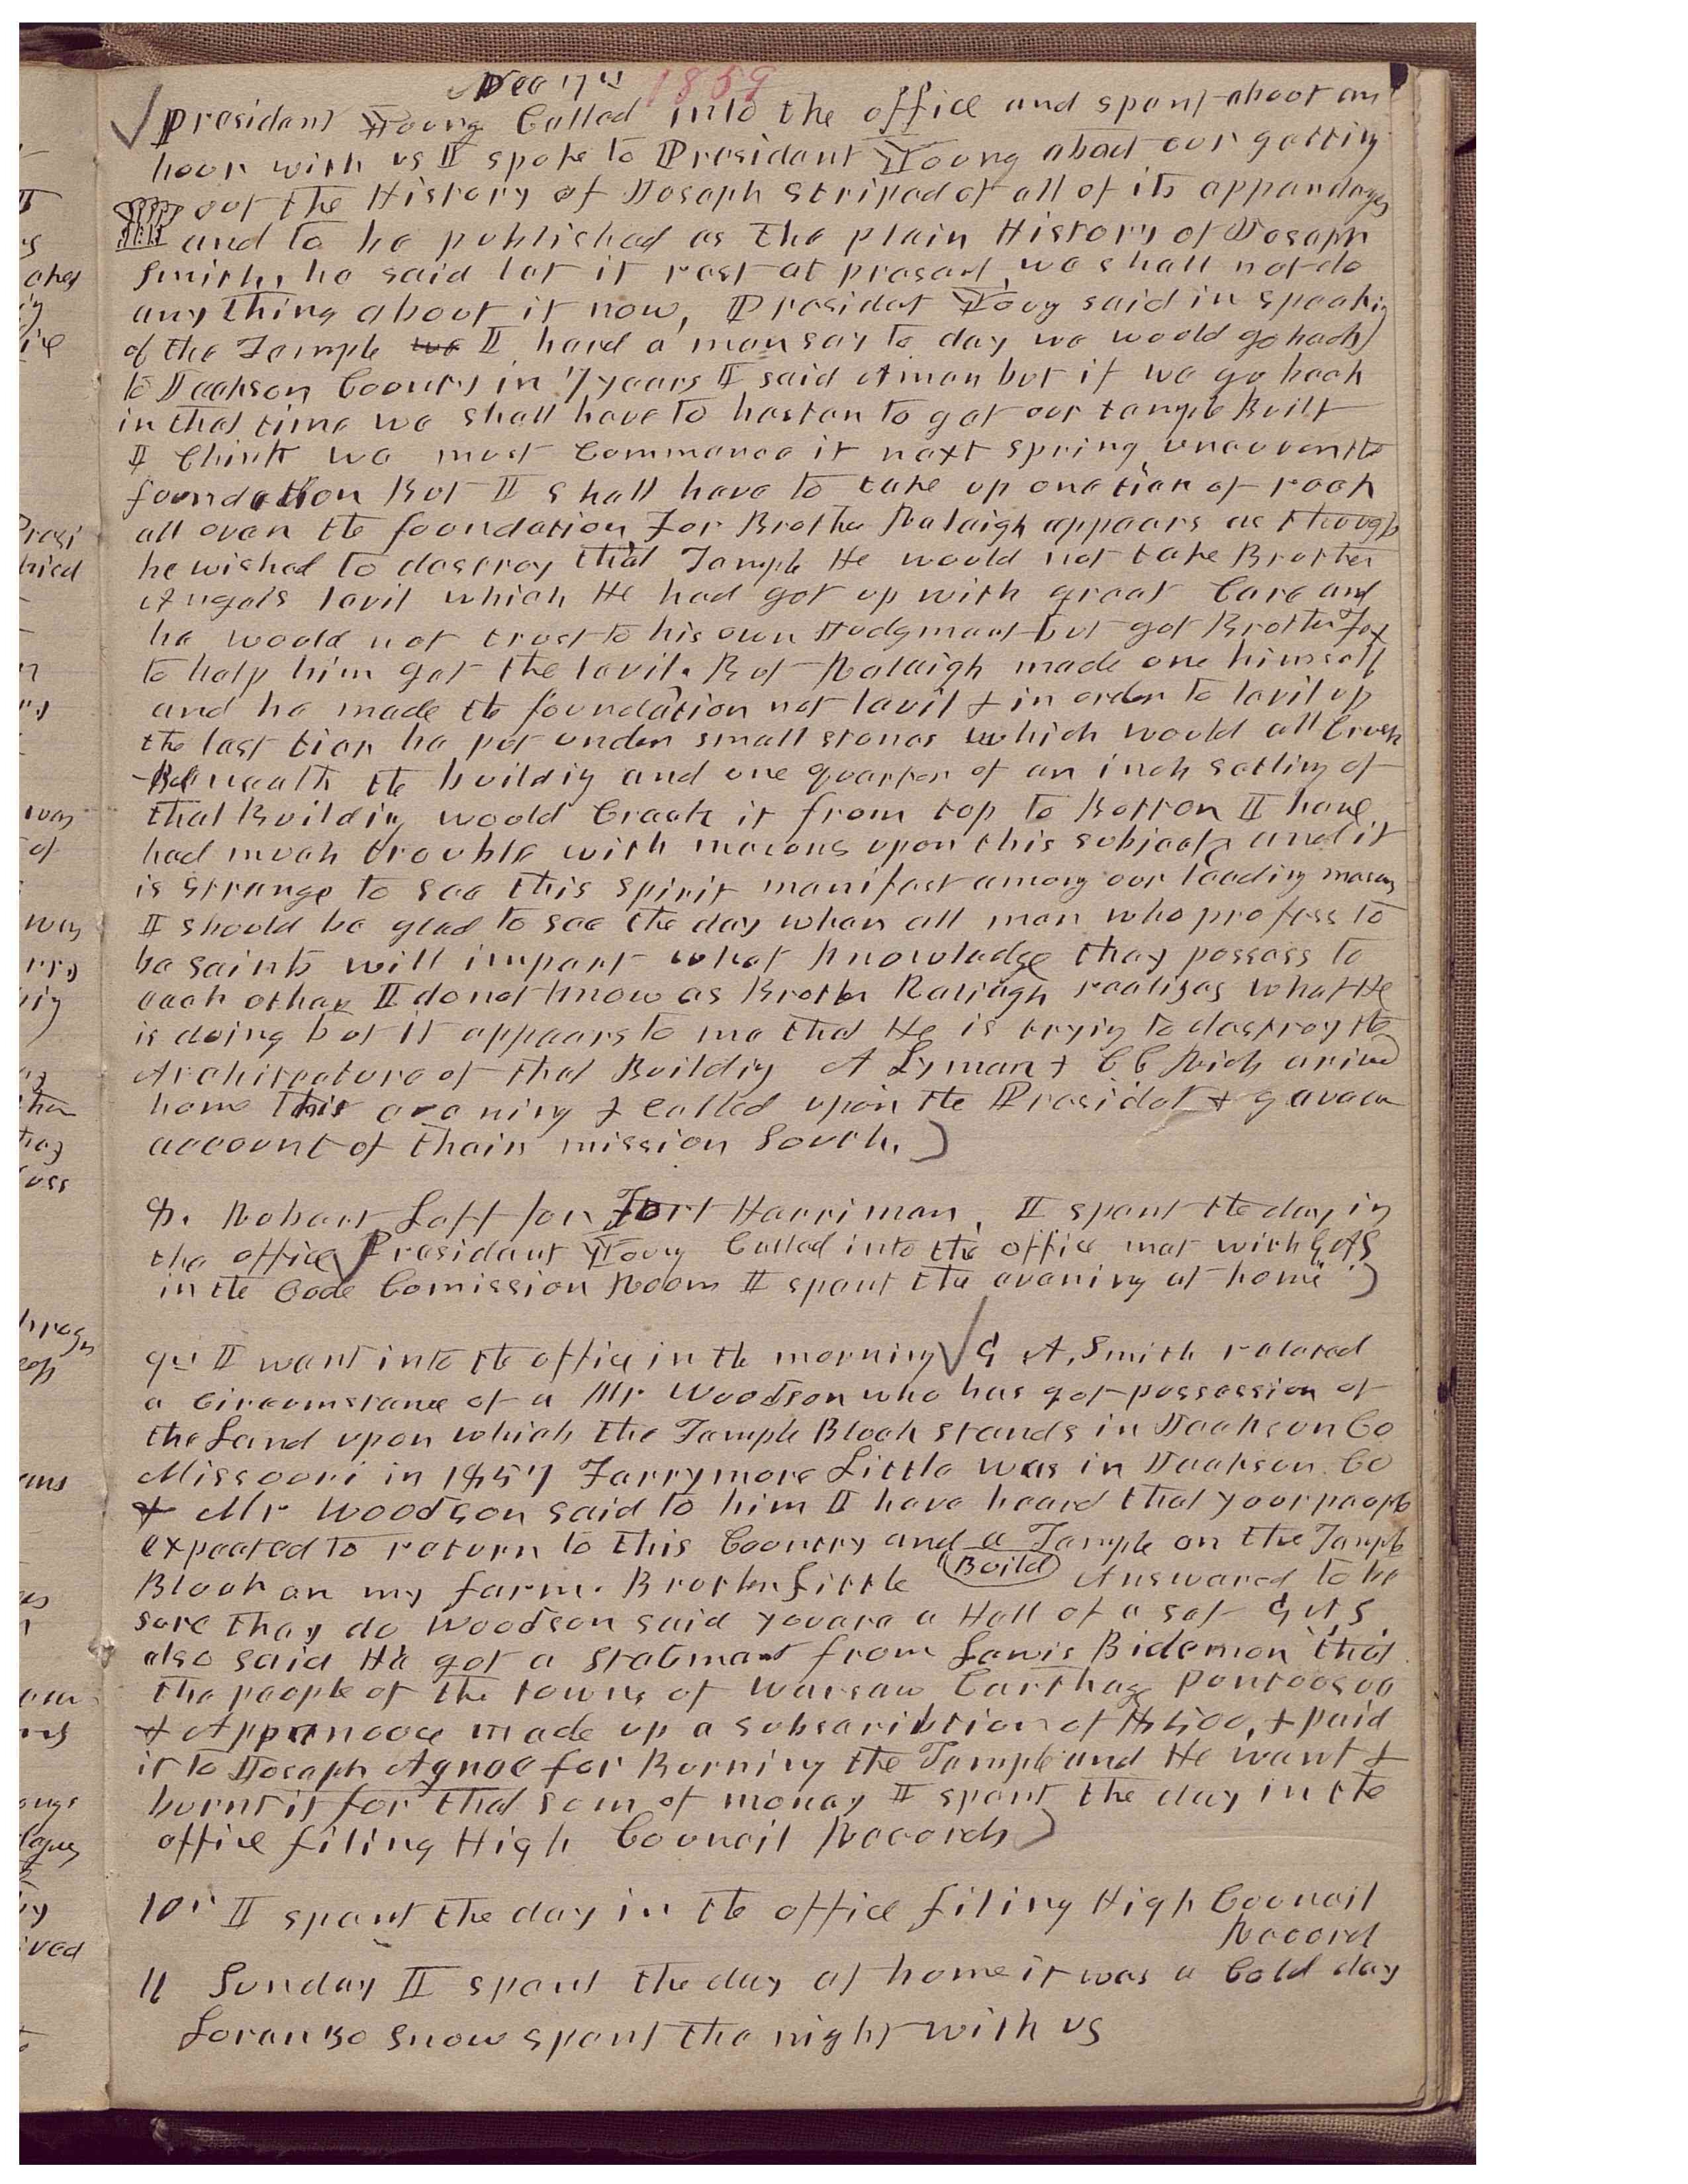 Dec 7th 1859
President Young Called into the office and spent about an
hour with us I spoke to President Young about our getting
out the History of Joseph striped of all of its appendages
and to be published as the plain History of Joseph
Smith, he said let it rest at presant, we shall not do
any thing about it now, Presidet Youg said in speakig
of the Temple we I heard a man say to day we would go back
to Jackson County in 7 years I said Amen but if we go back
in that time we shall have to hasten to get our temple Built
I think we must Commence it next spring uncover the
foundation But I shall have to take up one tier of rock
all over the foundation For Brother Raleigh appears as though
he wished to destroy that Temple He would not take Brother
Angels level which He had got up with great Care and
he would not trust to his own Judgmant but got Brother Fox
to help him get the level. But Raleigh made one himself
and he made the foundation not lavil & in order to lavil up
the last tier he put under small stones which would all Crush
Beneath the buildig and one quarter of an inch setling of
that Buildig would Crack it from top to Bottom I have
had much trouble with masons upon this subject and it
is strange to see this spirit manifest among our leading masons
I should be glad to see the day when all men who profess to
be saints will impart what knowledge they possess to
each other I do not know as Brother Raliagh realizes what He
is doing but it appears to me that He is tryig to destroy the
Architecture of that Buildig A Lyman & C C Rich arived
home this evening & called upon the Presidet & gave an
account of their mission South.
8. Robert Left for Fort Harriman, I spent the day in
the office President Youg Called into the office met with G A S
in the Code Comission Room I spent the evening at home
9th I went into the office in the morning G. A. Smith related
a Circumstance of a Mr Woodson who has got possession of
the Land upon which the Temple Block stands in Jackson Co
Missouri in 1857 Farrymore Little was in Jackson Co
& Mr Woodson said to him I have heard that your people
expected to return to this Country and a Temple on the Temple
Build
Block on my farm. Brother Little Answered to be
sure they do Woodson said you are a Hell of a set G. A. S.
also said He got a statmant from Lewis Bidemon that
the people of the towns of Warsaw Carthage Pontoosoo
& Appanooce made up a subscribtion of $500, & paid
it to Joseph Agnoe for Burning the Temple and He went &
burnt it for that som of money I spent the day in the
office filing High Council Records
10th I spent the day in the office filing High Council
Record
11 Sunday I spent the day at home it was a Cold day
Loranzo Snow spent the night with us